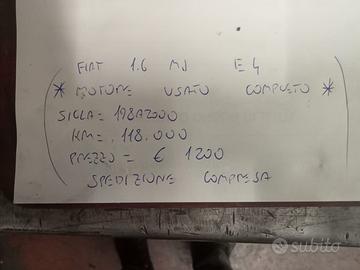 FIAT 1.6 MJ E4
* MOTORE USATO COMPLETO *
SIGLA = 198A2000
KM = 118.000
PREZZO = € 1200
SPEDIZIONE COMPRESA
subito